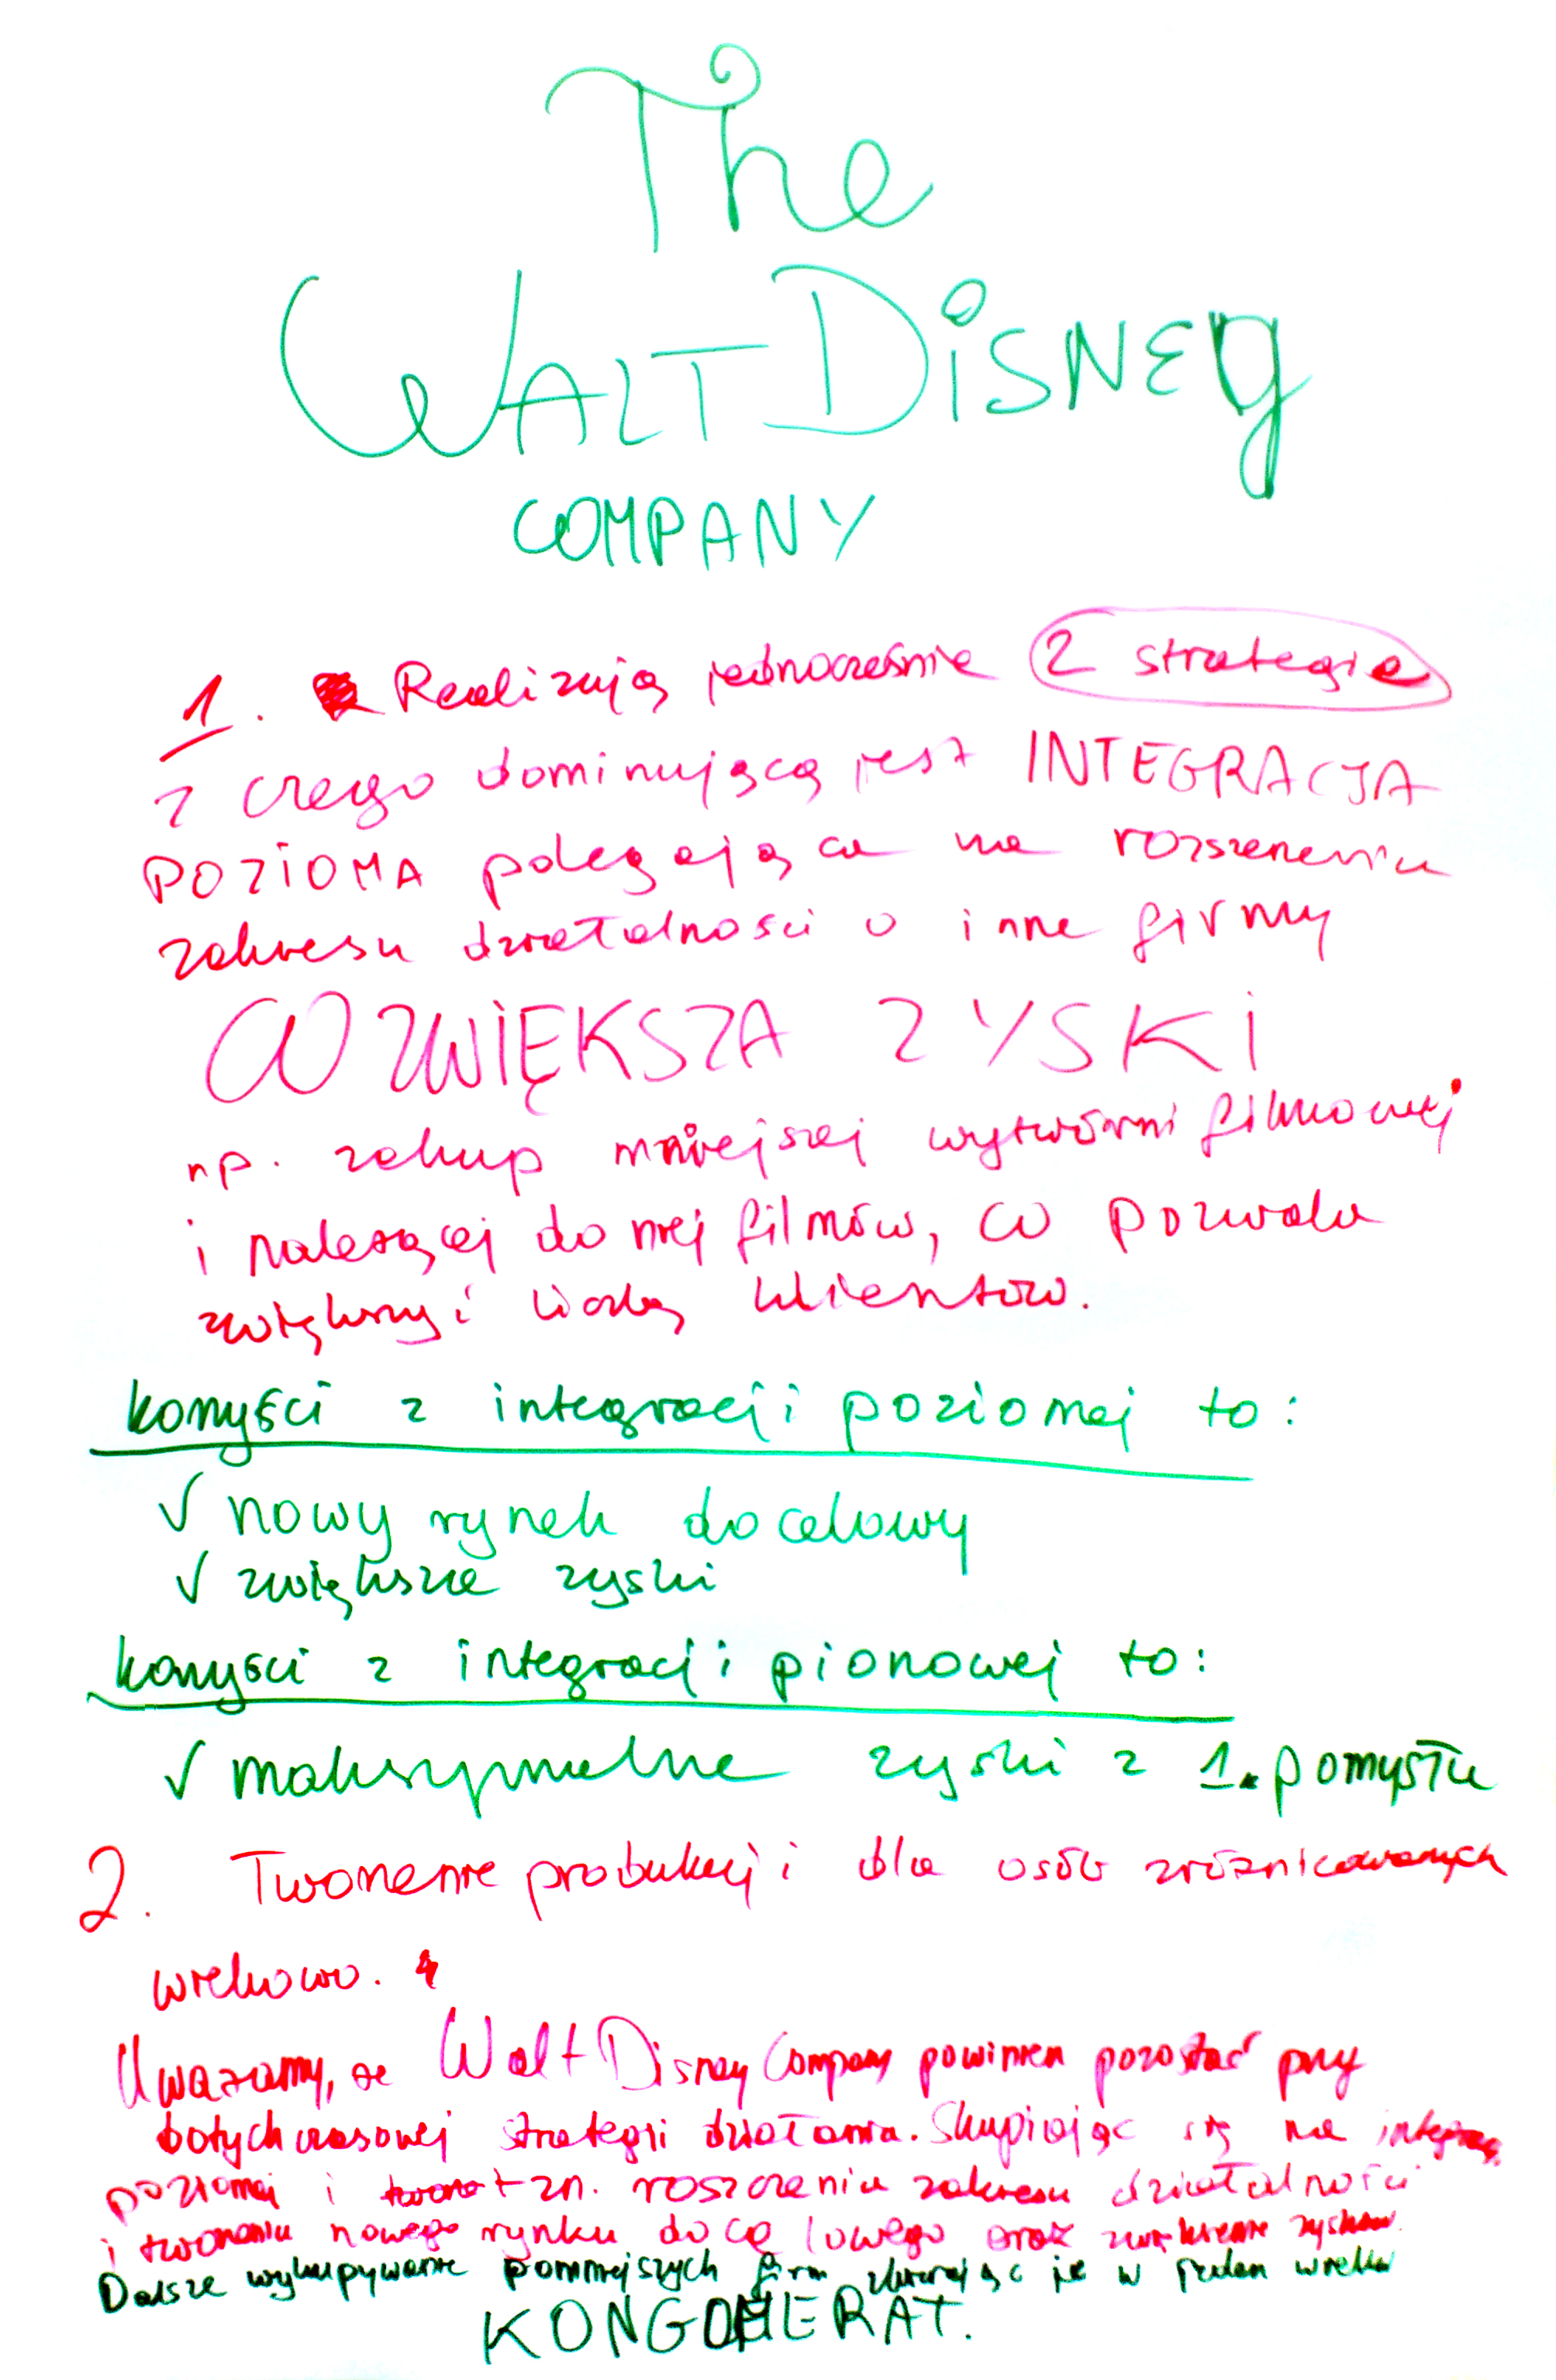 The
WALT DiSNEy
COMPANY
1. Realizują jednocześnie 2 strategie
z czego dominującą jest INTEGRACJA
POZIOMA polegająca na rozszerzeniu
zakresu działalności o inne firmy
CO ZWIĘKSZA ZYSKI
np. zakup mniejszej wytwórni filmowej
i należącej do niej filmów, co pozwala
zwiększyć liczbę klientów.
korzyści z integracji poziomej to:
√ nowy rynek docelowy
√ zwiększa zyski
korzyści z integracji pionowej to:
√ maksymalne zyski z 1. pomysłu
2. Tworzenie produkcji dla osób zróżnicowanych
wiekowo.
Uważamy, że Walt Disney Company powinien pozostać przy
dotychczasowej strategii działania. Skupiając się na
poziomej i tzn. roszczeniu zakresu działalności
i tworzeniu nowego rynku docelowego oraz zwiększenie zysków.
Dalsze wykupywanie pomniejszych firm zbierając je w jeden wielki
KONGOMERAT.